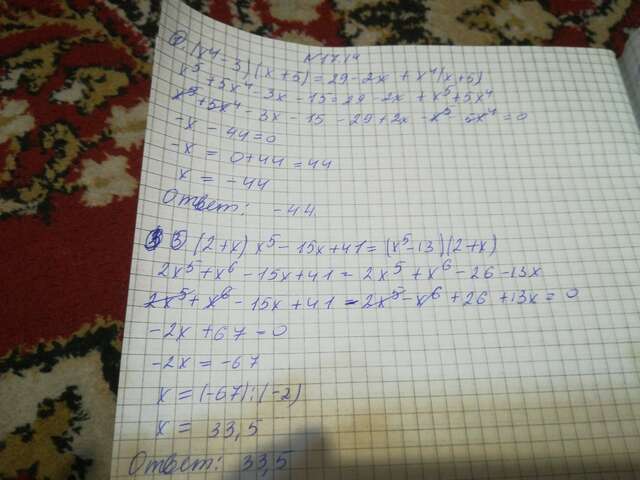 N 17.14
① (x4-3)(x+5)=29-2x+x⁴(x+5)
x⁵+5x⁴-3x-15=29-2x+x⁵+5x⁴
x⁵+5x⁴-3x-15-29+2x-x⁵-5x⁴=0
-x-44=0
-x=0+44=44
x=-44
Ответ: -44
③ (2+x)x⁵-15x+41=(x⁵-13)(2+x)
2x⁵+x⁶-15x+41=2x⁵+x⁶-26-13x
2x⁵+x⁶-15x+41-2x⁵-x⁶+26+13x=0
-2x+67=0
-2x=-67
x=(-67):(-2)
x=33,5
Ответ: 33,5